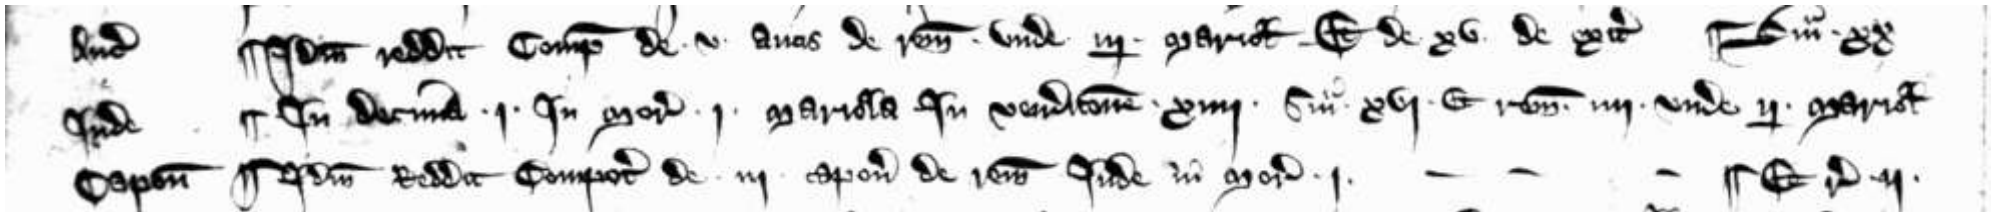 Auc ¶ Idm reddit Comp de .v. aucis de rem . Unde .iij. mariol Et de .xv. de exit ¶ Sm .xx
Inde ¶ In decima .j. In mor .j. mariola In venditione .xiiij. Sm .xvj. Et rem .iiij. unde .ij. mariol
Capon ¶ Idm Reddit Compot de .iij. capon de rem Inde in mor .j. — — — ¶ Et r .ij.